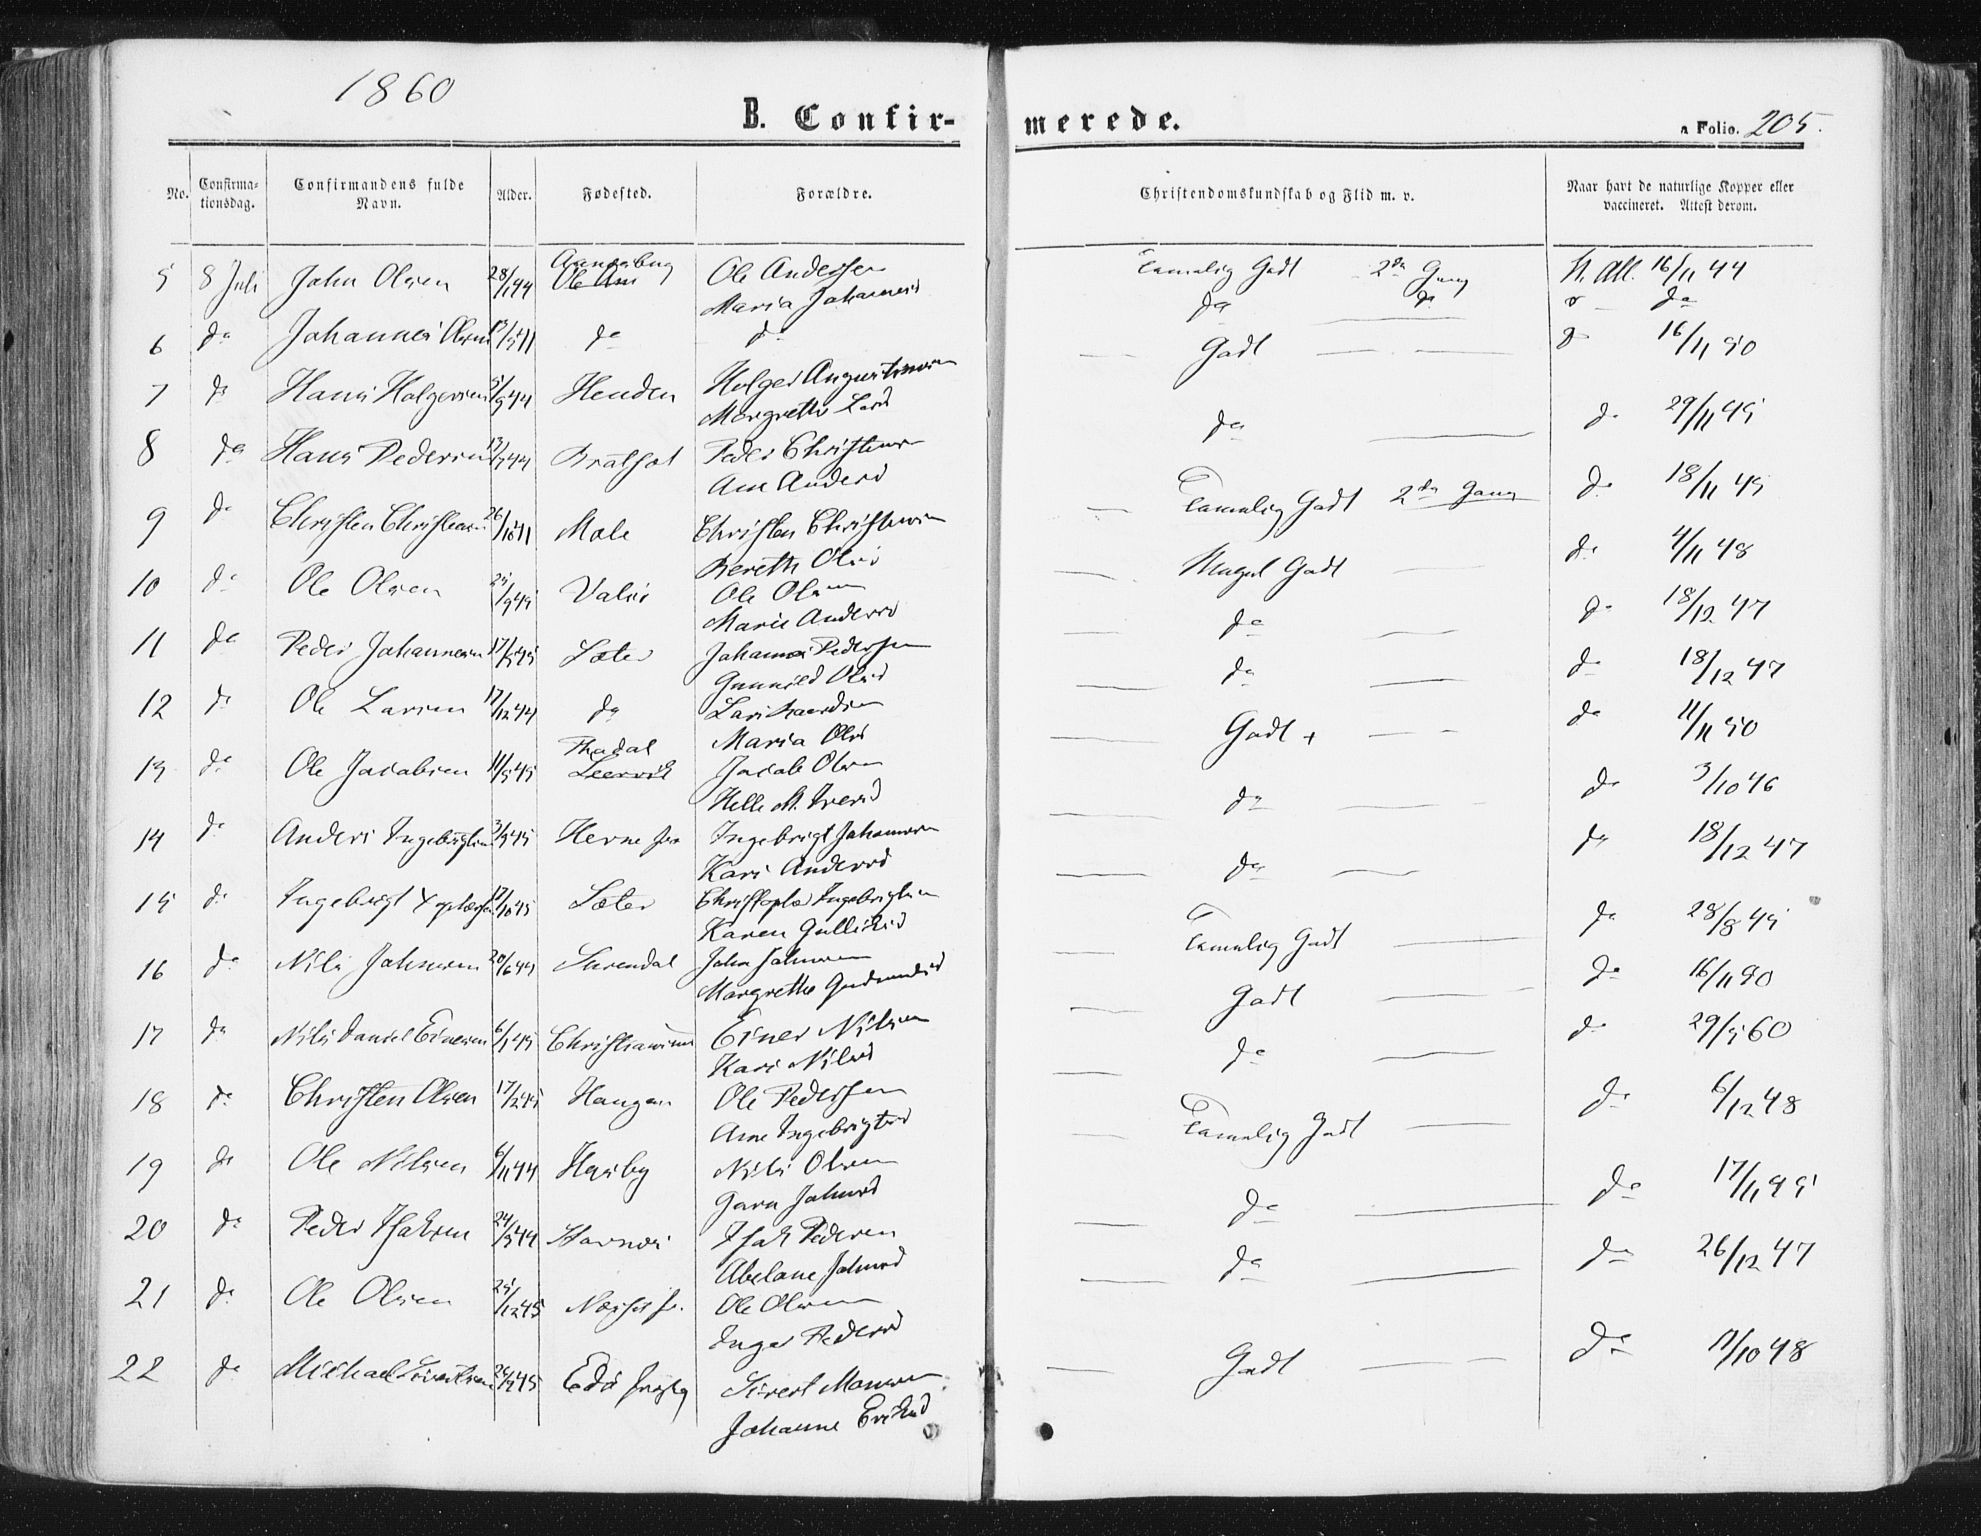 1860
B. Confir- merede.
a Folio. 205.
No. Confirma-tionsdag. Confirmandens fulde Navn. Alder. Fødested. Forældre. Christendomskundskab og Flid m. v. Naar havt de naturlige Kopper eller vaccineret. Attest derom.
5 8 Juli John Olsen 28/1 44 Ole Andersen Temelig Godt 2den Gang 16/11 44
Maria Johannesd do do do
6 do Johannes Olsen do do Godt 16/11 50
7 do Hans Holgersen Henden Holger Augustinusen
Margrethe Larsd do do 29/11 45
8 do Hans Pedersen Bratset Peder Christensen
Ane Andersd Temelig Godt 2den Gang do 18/11 45
9 do Christen Christensen Mole Christen Christensen
Bereth Olsd Meget Godt do 4/11 48
10 do Ole Olsen 25/9 45 Valøe Ole Olsen
Marie Andersd do do 18/12 47
11 do Peder Johannesen 17/5 45 Sæter Johannes Pedersen
Gunnild Olsd do do 18/12 47
12 do Ole Larsen 17/12 44 do Lars
Maria Olsd Godt + do 11/11 50
13 do Ole Jacobsen 11/5 45 Leervik Jacob Olsen
Helle M. Iversd do do 3/10 46
14 do Anders Ingebrigtsen 3/9 45 Herne Ingebrigt Johannesen
Kari Andersd do do 18/12 47
15 do Ingebrigt Xophersen 17/10 45 Sæter Christopher Ingebrigtsen
Karen Gulliksd Temelig Godt do 28/8 45
16 do Nils Johnsen 20/6 44 Surendal John Johnsen
Margrethe Gudmundsd Godt do 16/11 50
17 do Nils Daniel Einersen 6/1 45 Christiansund Einer Nilsen
Kari Nilsd do do 29/5 60
18 do Christen Olsen 17/2 45 Haugen Ole Pedersen
Ane Ingebrigtsd Temelig Godt do 6/12 48
19 do Ole Nilsen 6/11 44 Hasby Nils Olsen
Johnsd do do 17/11 45
20 do Peder Isaksen 24/9 44 Stavnes Isak Pedersen
Abelone Johnsd do do 26/12 47
21 do Ole Olsen 25/12 45 Ole Olsen
Inger Pedersd
22 do Michael Sivertsen Edø Sivert Monsen Godt do 17/10 48
Johanne Eriksd